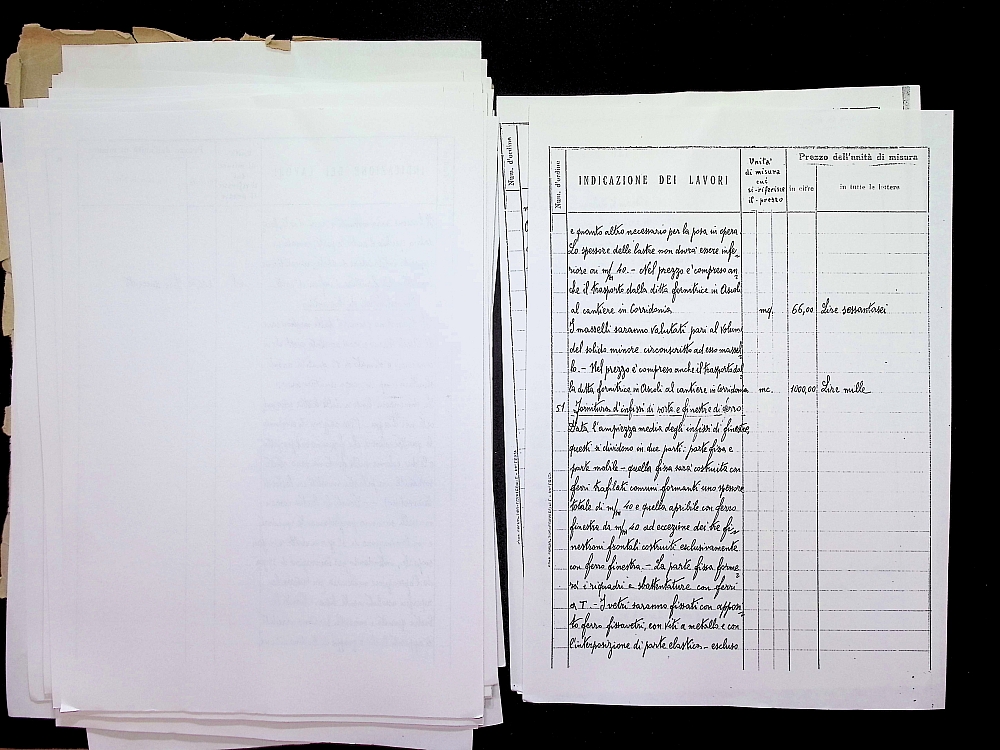 Num. d'ordine
Num. d'ordine
INDICAZIONE DEI LAVORI
Unità
di misura
cui
si riferisce
il prezzo
Prezzo dell'unità di misura
in cifre
in tutte le lettere
e quanto altro necessario per la posa in opera.
Lo spessore delle lastre non dovrà essere infe-
riore ai m/m 40. - Nel prezzo è compreso an-
che il trasporto dalla ditta fornitrice in Ascoli
al cantiere in Corridonia mq. 66,00 Lire sessantasei
I masselli saranno valutati pari al volum
del solido minore circonscritto ad esso massel
lo. - Nel prezzo è compreso anche il trasporto dal
la ditta fornitrice in Ascoli al cantiere in Corridonia mc. 1000,00 Lire mille
51 Fornitura d'infissi di porte e finestre di ferro
Data l'ampiezza media degli infissi di finestre,
questi si dividono in due parti: parte fissa e
parte mobile - quella fissa sarà costruita con
ferri trafilati comuni formanti uno spessore
totale di m/m 40 e quella apribile con ferro
finestra da m/m 40 ad eccezione dei tre fi-
nestroni frontali costruiti esclusivamente
con ferro finestra. - La parte fissa forme
rà i riquadri e sbattentature con ferri
a T. - I vetri saranno fissati con apposi-
to ferro fissavetri, con viti a metallo e con
l'interposizione di parte elastica - escluso